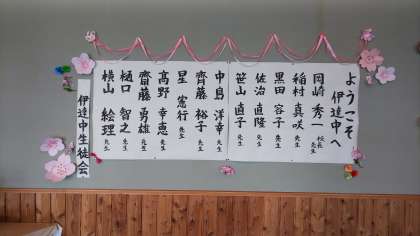 ようこそ
伊達中へ
岡崎 秀一 校長先生
稲村 真咲 先生
黒田 容子 先生
佐治 直隆 先生
笹山 直子 先生
齊藤 裕子 先生
中島 洋幸 先生
星 憲行 先生
髙野 幸恵 先生
齋藤 勇雄 先生
樋口 智之 先生
横山 絵理 先生
伊達中生徒会